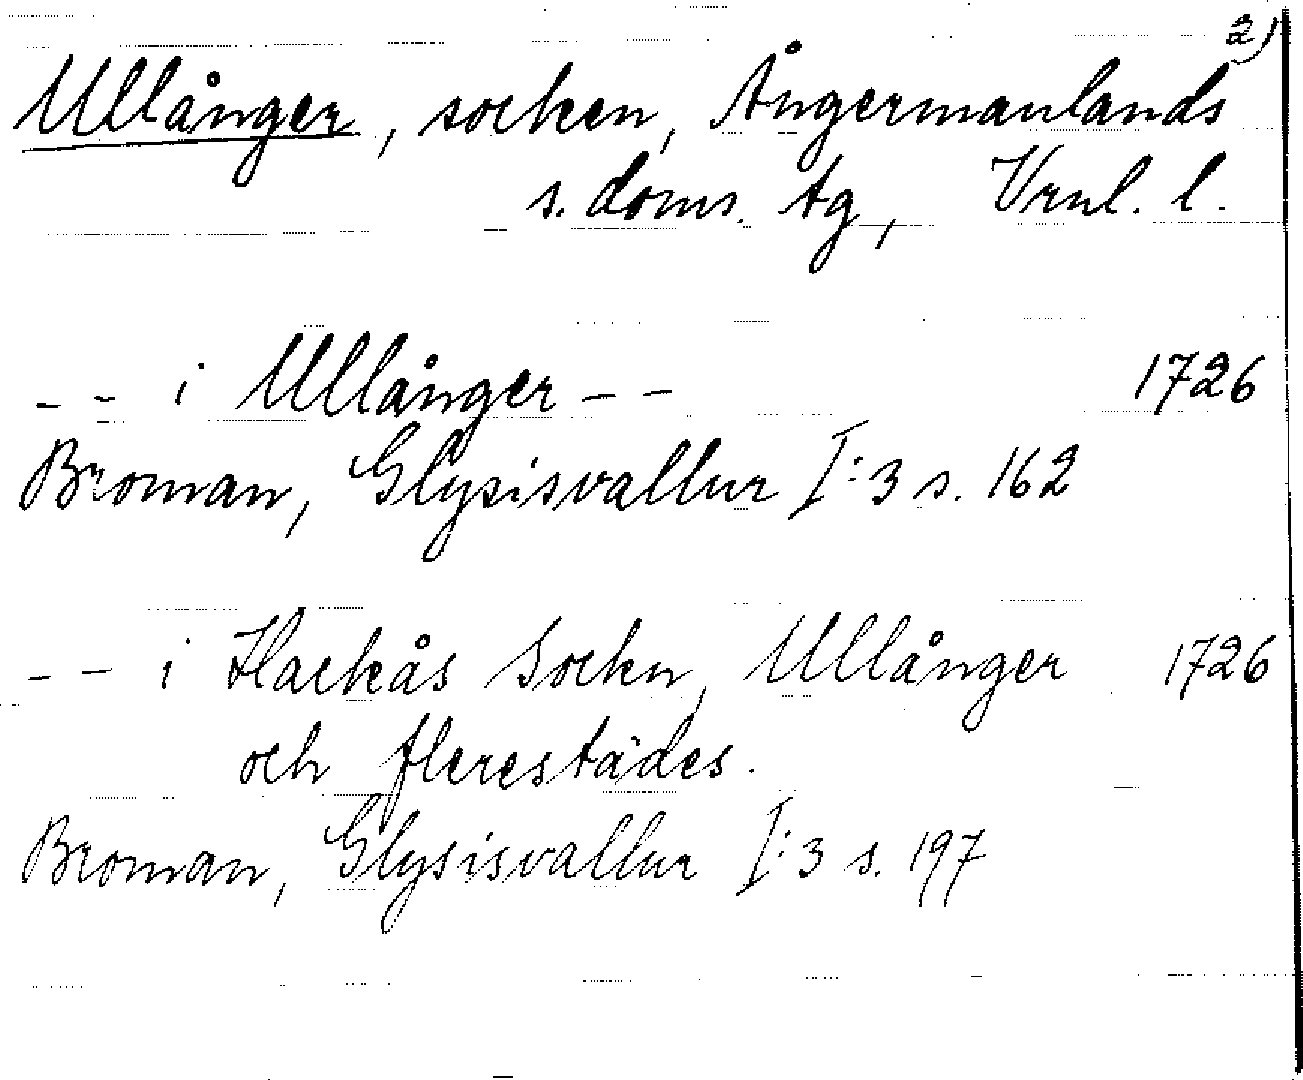 2)
Ullånger, socken, Ångermanlands
s. doms. tg, Vrnl. l.
-- i Ullånger -- 1726
Broman, Glysisvallur I:3 s. 162
-- i Hackås Sockn, Ullånger 1726
och flerestädes.
Broman, Glysisvallur I:3 s. 197